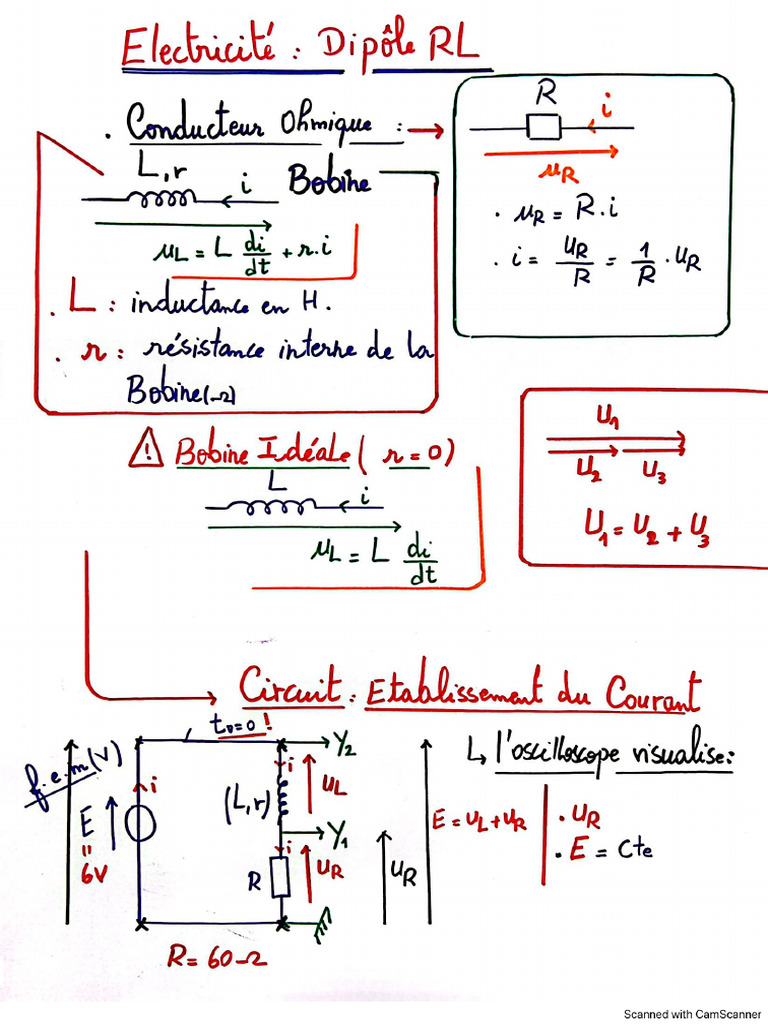 Electricité : Dipôle RL
. Conducteur Ohmique : →
R
i
uR
. uR = R.i
. i = uR/R = 1/R . uR
L, r
i
Bobine
uL = L di/dt + r.i
. L : inductance en H.
. r : résistance interne de la
Bobine (Ω)
⚠ Bobine Idéale ( r = 0 )
L
i
uL = L di/dt
U1
U2 U3
U1 = U2 + U3
Circuit : Etablissement du Courant
t0=0 !
f.e.m (V)
E
=
6V
i
Y2
i
(L, r)
uL
Y1
i
R
uR
R = 60 Ω
uR
E = uL + uR
↳ l'oscilloscope visualise :
. uR
. E = Cte
Scanned with CamScanner